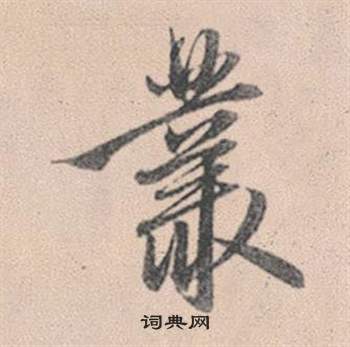 叢
词典网